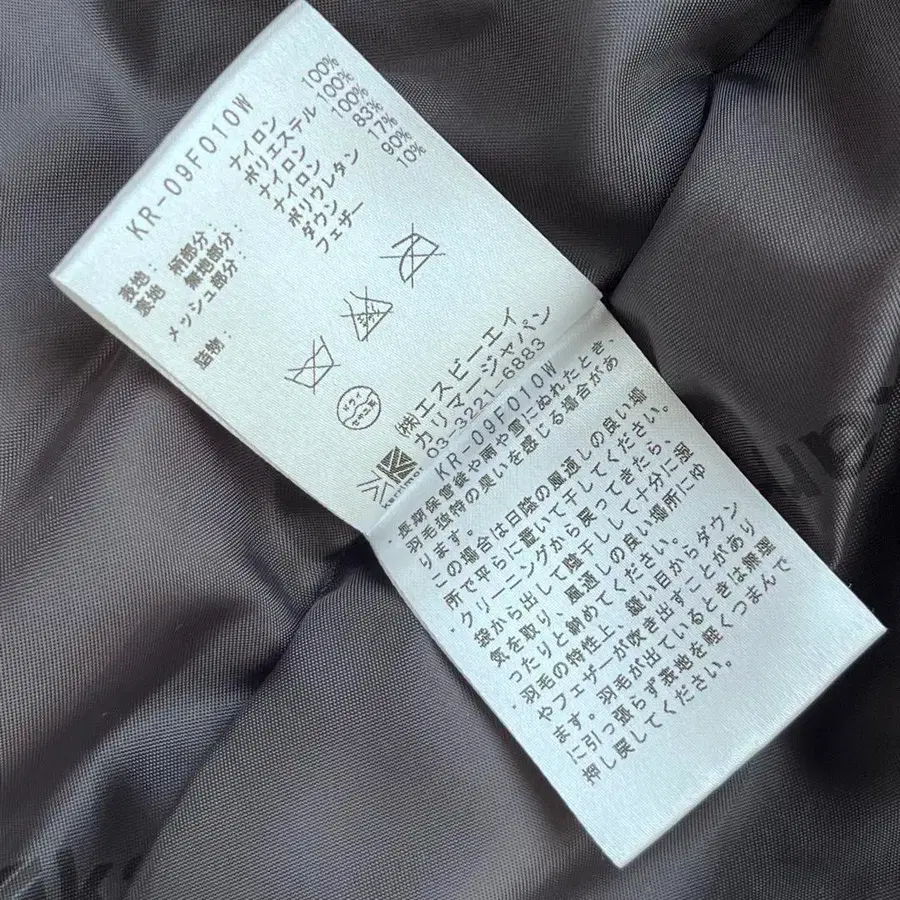 KR-09F010W
表地: ナイロン 100%
裏地 柄部分: ポリエステル 100%
無地部分: ナイロン 100%
メッシュ部分: ナイロン 83%
ポリウレタン 17%
詰物: ダウン 90%
フェザー 10%
ドライ
セキユ系
(株)エスビーエイ
カリマージャパン
03-3221-6883
karrimor
KR-09F010W
・長期保管後や雨や雪にぬれたとき、
羽毛独特の臭いを感じる場合があ
ります。
この場合は日陰の風通しの良い場
所で平らに置いて干してください。
・クリーニングから戻ってきたら、
袋から出して陰干しして十分に湿
気を取り、風通しの良い場所にゆ
ったりと納めてください。
・羽毛の特性上、縫い目からダウン
やフェザーが吹き出すことがあり
ます。羽毛が出ているときは無理
に引っ張らず表地を軽くつまんで
押し戻してください。